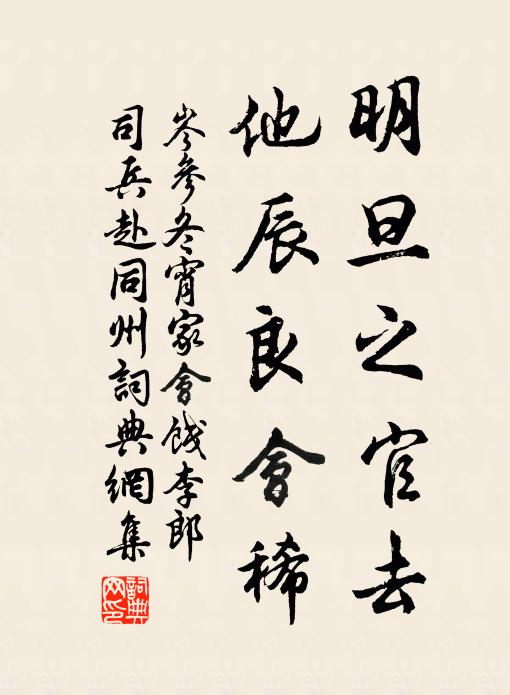 明旦之官去
他辰良會稀
岑參冬宵家會餞李郎
司兵赴同州詞典網集
詞典網印